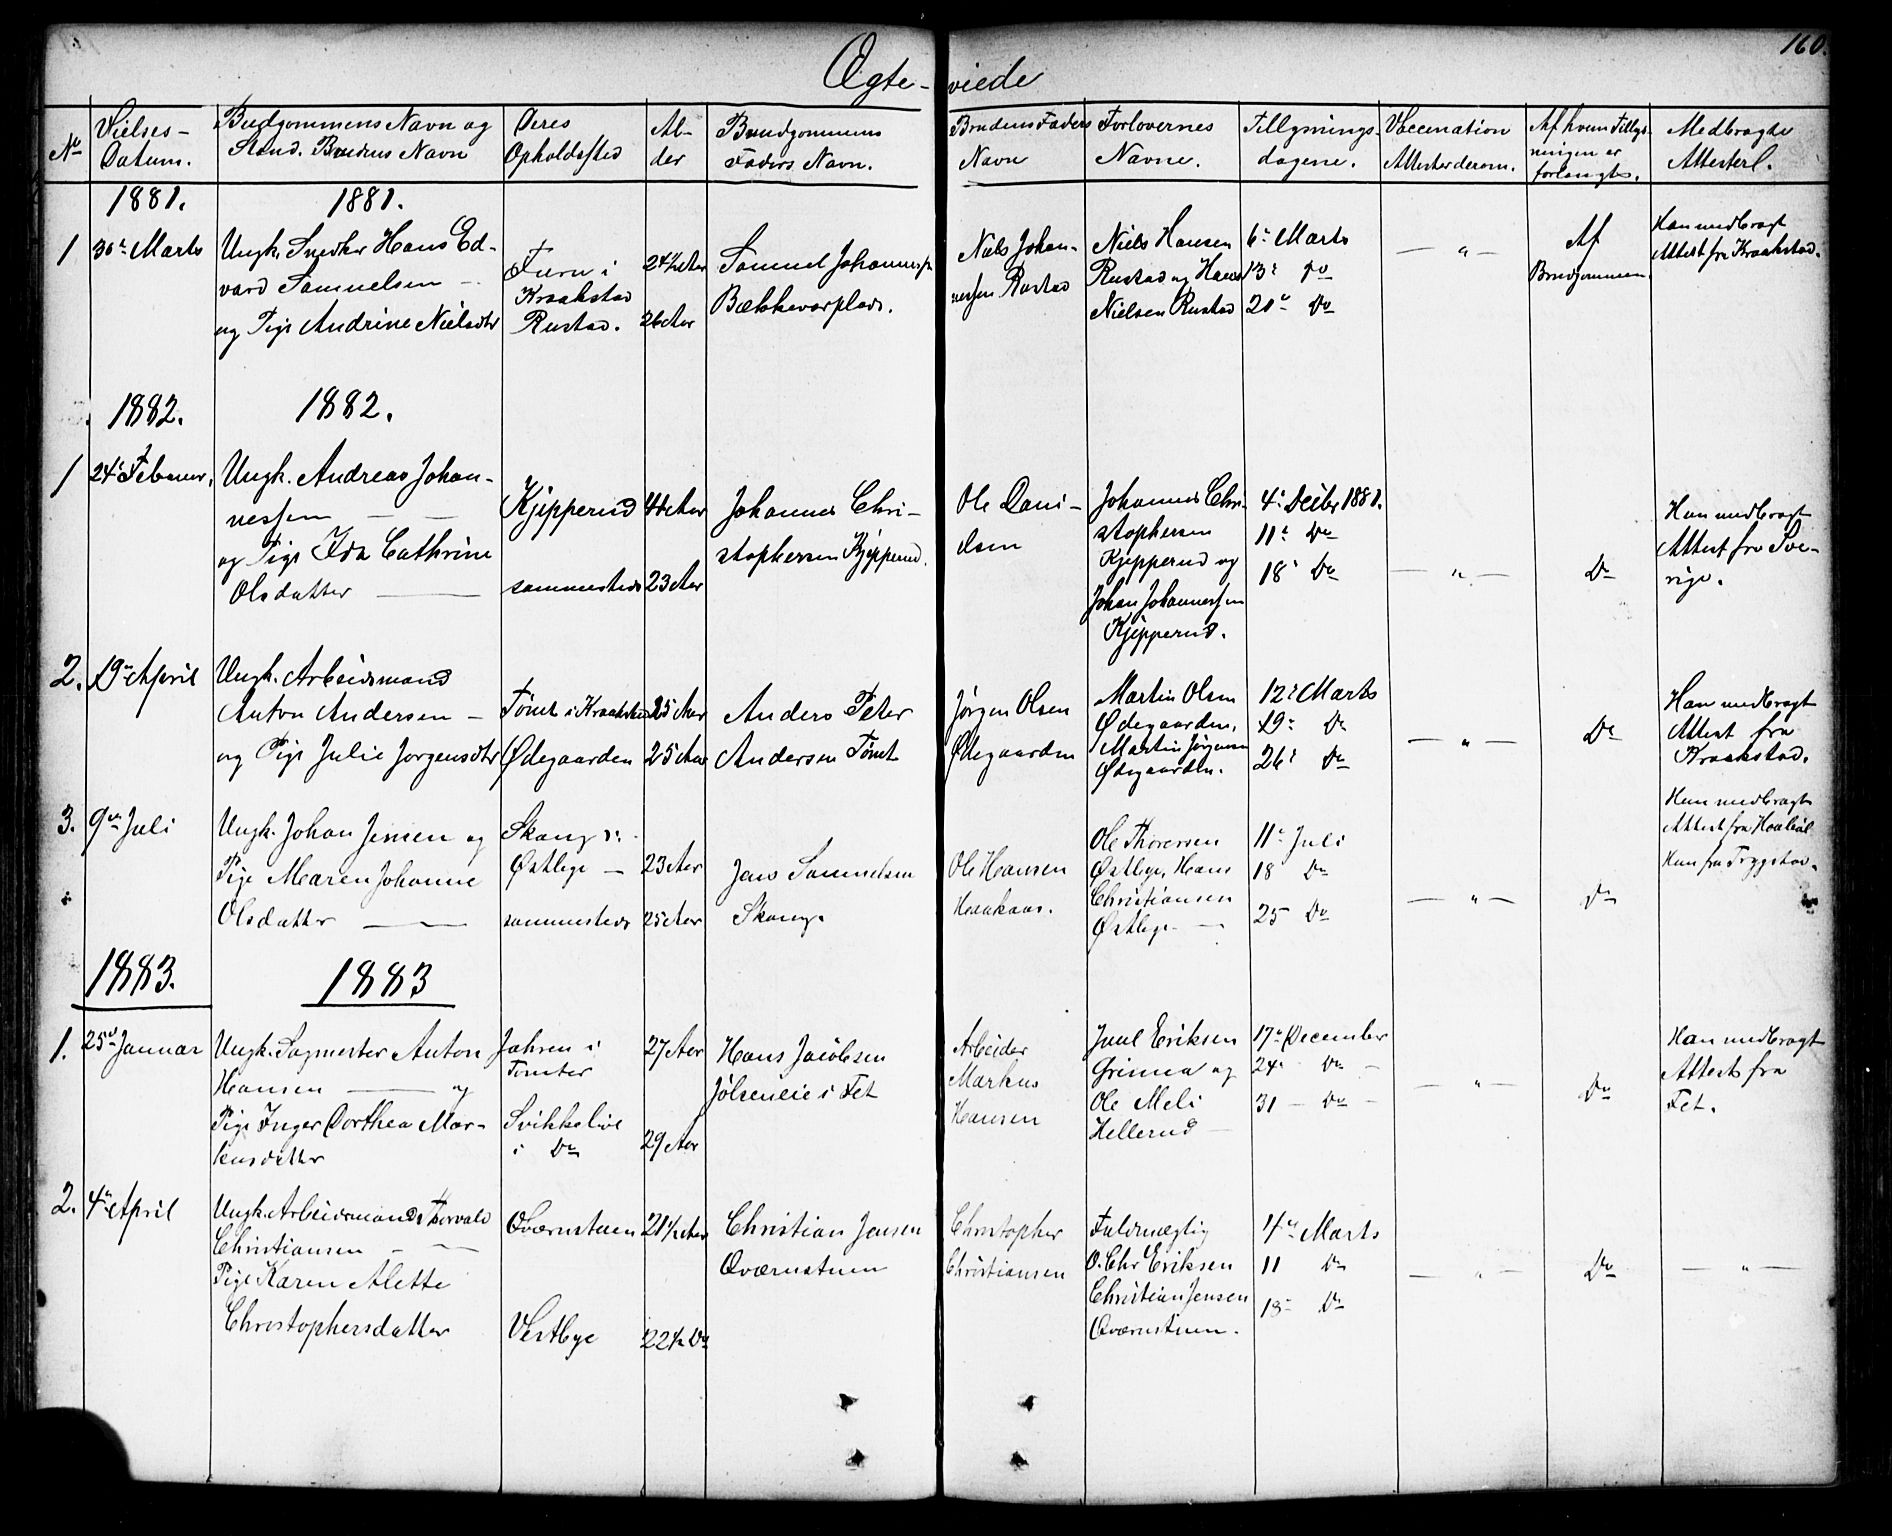 160.
Ægteviede
No
Vielses-
Datum.
Brudgommens Navn og
Stand. Brudens Navn
Deres
Opholdssted
Al-
der
Brudgommens
Faders Navn.
Brudens Faders
Navn
Forlovernes
Navne.
Tillysnings-
dagene.
Vaccination
Attester derom.
Af hvem Tillys-
ningen er
forlangt.
Medbragte
Attester.
1881.
1881.
1
30te Marts
Ungk. Snedker Hans Ed-
vard Samuelsen —
og Pige Andrine Nielsdtr
i
Kraakstad
Rustad.
24½ Aar
26 Aar
Samuel Johannesen
Niels Johan-
nessen Rustad
Niels Hansen
Rustad og Hans
Nielsen Rustad
6te Marts
13de Do
20de Do
— " —
Af
Brudgommen
Han medbragt
Attest fra Kraakstad.
1882.
1882.
1
24de Februar.
Ungk. Andreas Johan-
nessen — —
og Pige Ida Cathrine
Olsdatter —
Kjipperud
sammesteds
44 Aar
23 Aar
Johannes Chri-
stophersen Kjipperud.
Ole Dani-
elsen
Johannes Chri-
stophersen
Kjipperud og
Johan Johannessen
Kjipperud.
4de Decbr 1881.
11te Do
18de Do
— " —
Do
Han medbragt
Attest fra Sve-
rige.
2.
19de April
Ungk. Arbeidsmand
Anton Andersen —
og Pige Julie Jorgensdtr
Tomt i Kraakstad
Ødegaarden
25 Aar
25 Aar
Anders Peter
Andersen Tomt
Jørgen Olsen
Ødegaarden
Martin Olsen
Ødegaarden,
Martin Jørgensen
Ødegaarden.
12te Marts
19de Do
26de Do
— " —
Do
Han medbragt
Attest fra
Kraakstad.
3.
9de Juli
Ungk. Johan Jensen og
Pige Maren Johanne
Olsdatter —
Østbye —
sammesteds
23 Aar
25 Aar
Jens Samuelsen
Ole Hansen
Haakaas.
Ole Thoresen
Østbye, Hans
Christiansen
Østbye. —
11te Juli
18 Do
25 Do
— " —
Do
Han medbragt
Attest fra Haabøl
Hun fra Trygstad.
1883.
1883
1.
25de Januar
Ungk. Sagmester Anton
Hansen — og
Pige Inger Dorthea Mar-
kusdatter
Jahren i
Tomter
i Do
27 Aar
29 Aar
Hans Jacobsen
Jølseneie i Fet
Arbeider
Markus
Hansen
Juul Eriksen
Grinna og
Ole Meli
Hellerud —
17de December
24 Do —
31 — Do —
— " —
Do
Han medbragt
Attest fra
Fet.
2.
4de April
Ungk. Arbeidsmand Thorvald
Christiansen — —
Pige Karen Alette
Christophersdatter
Qværnstuen
Vestbye
21½ Aar
22½ Do
Christian Jensen
Qværnstuen
Christopher
Christiansen
Fuldmægtig
O. Chr Eriksen
Christian Jensen
Qværnstuen.
4de Marts
11 Do
18 Do
— " —
Do
— " —